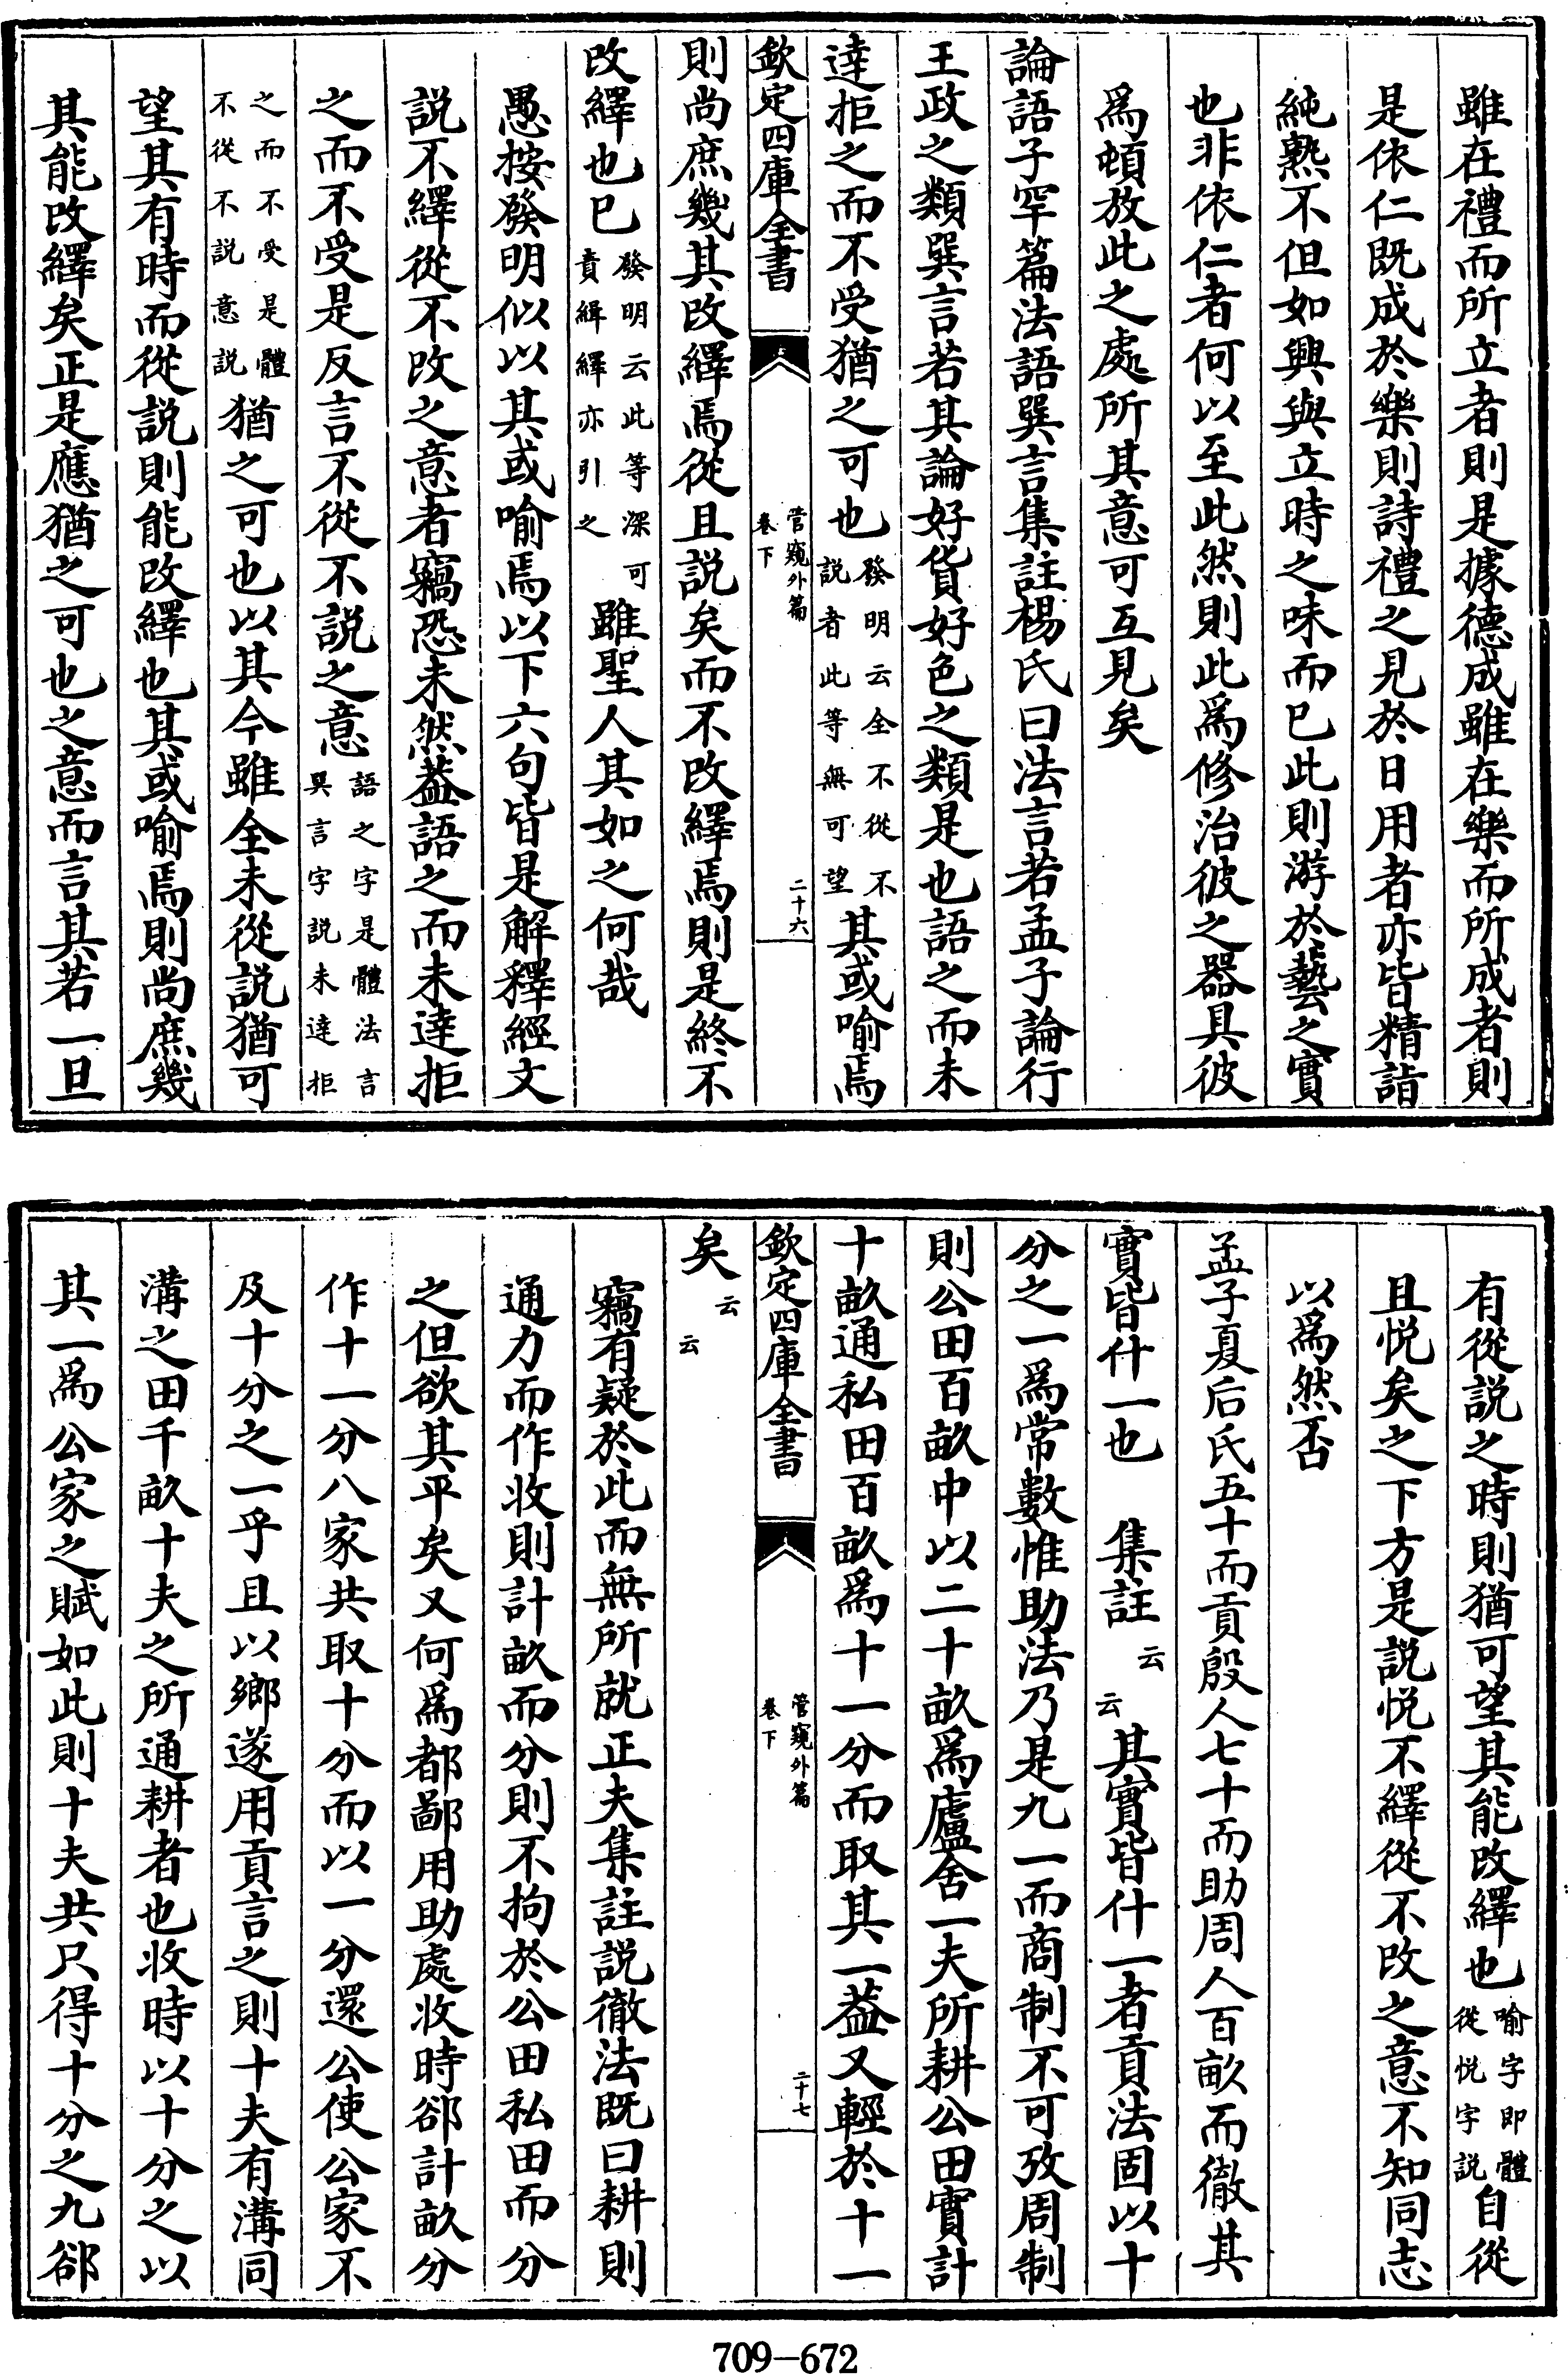 雖在禮而所立者則是據德成雖在樂而所成者則
是依仁既成於樂則詩禮之見於日用者亦皆精詣
純熟不但如興與立時之味而已此則游於藝之實
也非依仁者何以至此然則此為修治彼之器具彼
為頓放此之處所其意可互見矣
論語子罕篇法語巽言集註楊氏曰法言若孟子論行
王政之類巽言若其論好貨好色之類是也語之而未
達拒之而不受猶之可也發明云全不從不說者此等無可望其或喻焉
欽定四庫全書
管窺外篇
卷下
二十六
則尚庶幾其改繹焉從且說矣而不改繹焉則是終不
改繹也已發明云此等深可責緝繹亦引之雖聖人其如之何哉
愚按發明似以其或喻焉以下六句皆是解釋經文
說不繹從不改之意者竊恐未然葢語之而未達拒
之而不受是反言不從不說之意語之字是體法言巽言字說未達拒
之而不受是體不從不說意說猶之可也以其今雖全未從說猶可
望其有時而從說則能改繹也其或喻焉則尚庶幾
其能改繹矣正是應猶之可也之意而言其若一旦
有從說之時則猶可望其能改繹也喻字即體從悅字說自從
且悅矣之下方是說悅不繹從不改之意不知同志
以為然否
孟子夏后氏五十而貢殷人七十而助周人百畝而徹其
實皆什一也 集註云云其實皆什一者貢法固以十
分之一為常數惟助法乃是九一而商制不可攷周制
則公田百畝中以二十畝為廬舍一夫所耕公田實計
十畝通私田百畝為十一分而取其一葢又輕於十一
欽定四庫全書
管窺外篇
卷下
二十七
矣云云
竊有疑於此而無所就正夫集註說徹法既曰耕則
通力而作收則計畝而分則不拘於公田私田而分
之但欲其平矣又何為都鄙用助處收時郤計畝分
作十一分八家共取十分而以一分還公使公家不
及十分之一乎且以鄉遂用貢言之則十夫有溝同
溝之田千畝十夫之所通耕者也收時以十分之以
其一為公家之賦如此則十夫共只得十分之九郤
709-672